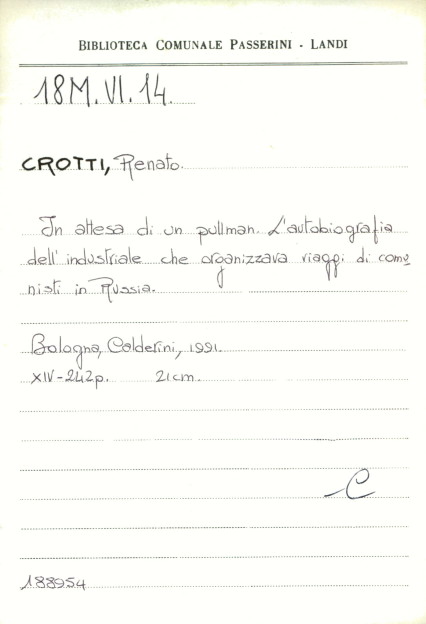 BIBLIOTECA COMUNALE PASSERINI - LANDI
18M.VI.14.
CROTTI, Renato.
In attesa di un pullman. L'autobiografia
dell'industriale che organizzava viaggi di comu
nisti in Russia.
Bologna, Calderini, 1991.
XIV-242p. 21cm.
C
188954